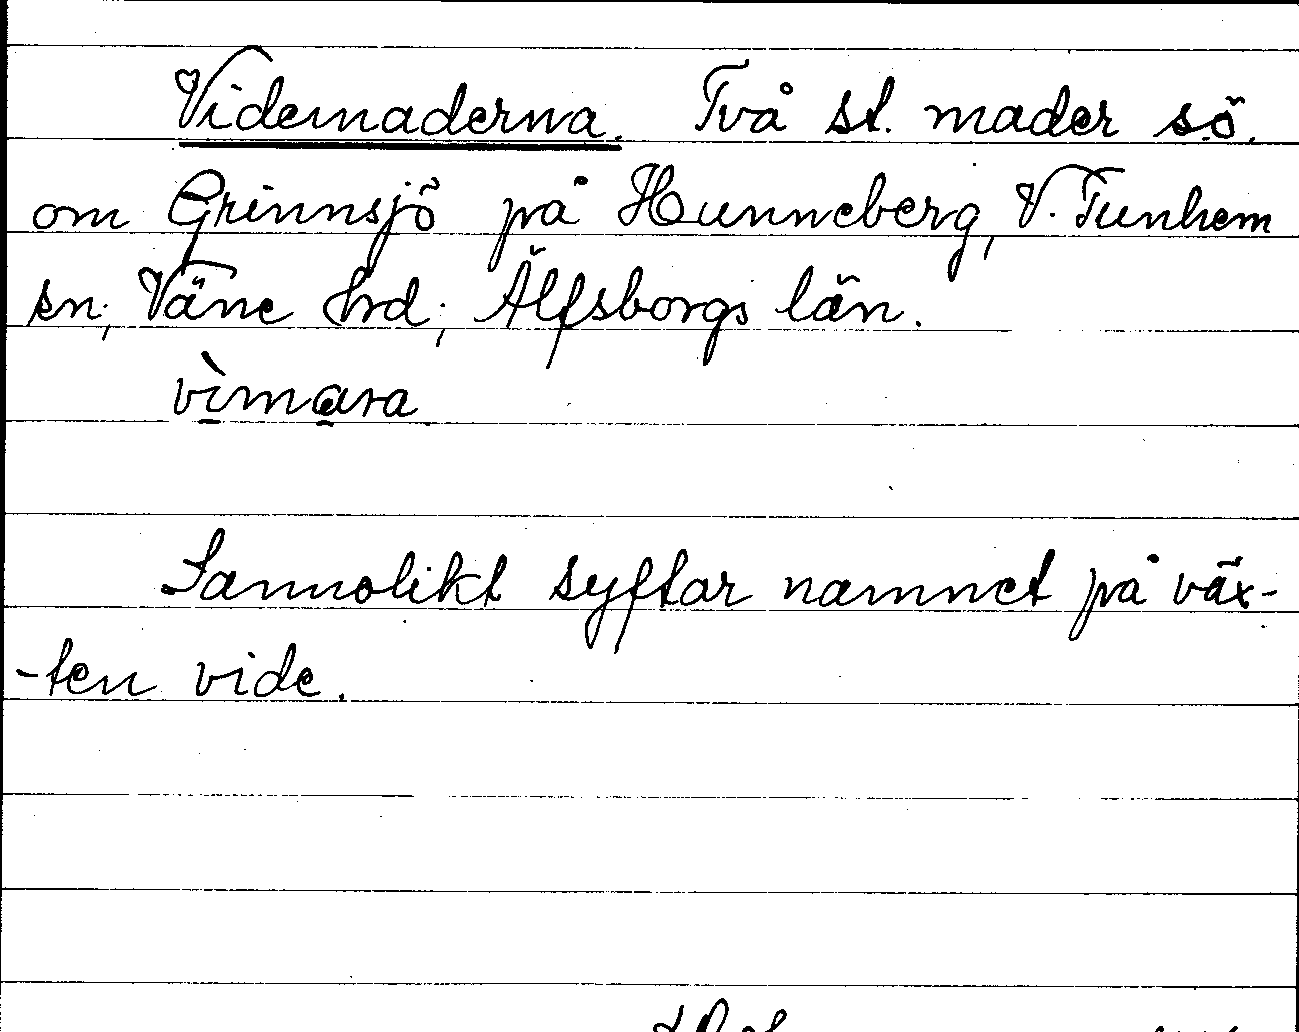 Videmaderna. Två st. mader s.ö.
om Grinnsjö på Hunneberg, V. Tunhem
sn; Väne hrd; Älfsborgs län.
vìmara
Sannolikt syftar namnet på väx-
-ten vide.